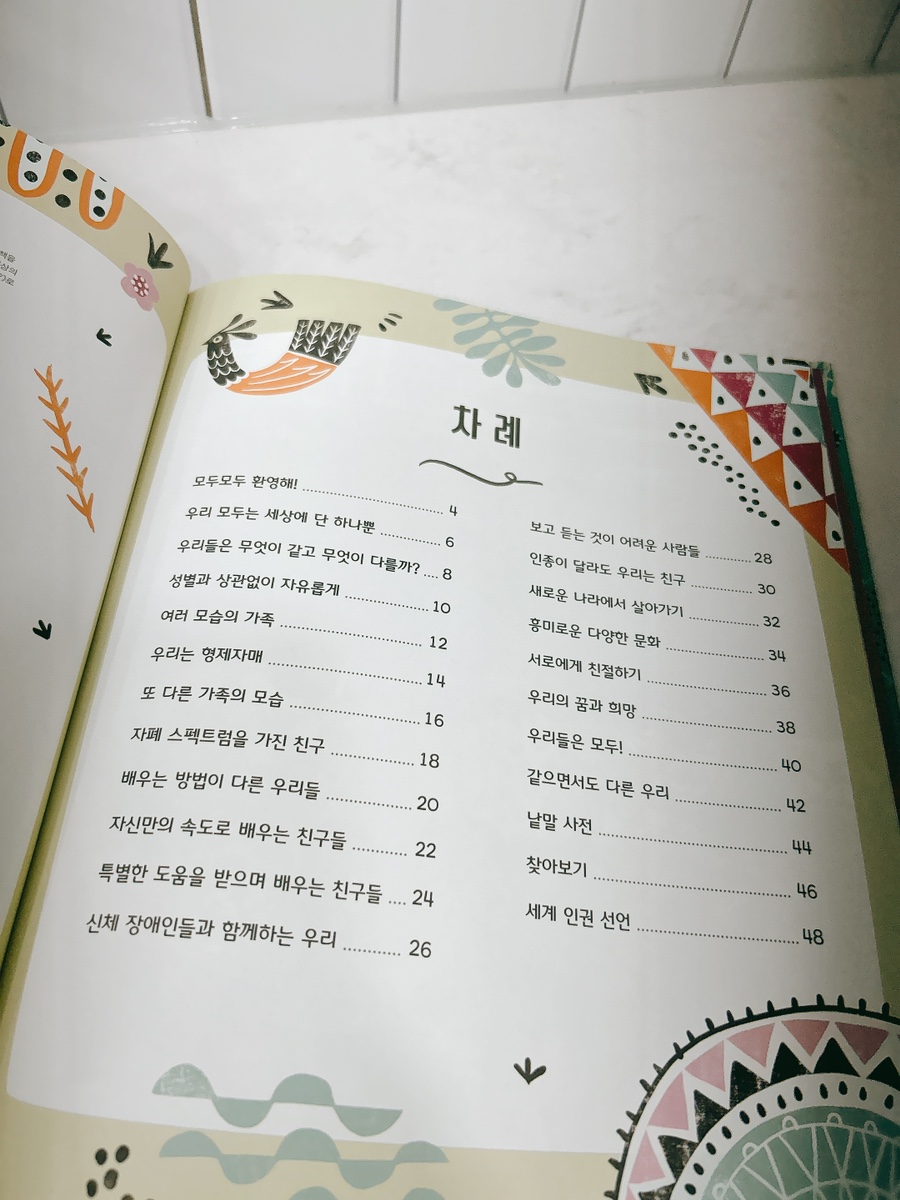 책을
상의
로
차례
모두모두 환영해! 4
우리 모두는 세상에 단 하나뿐 6
우리들은 무엇이 같고 무엇이 다를까? 8
성별과 상관없이 자유롭게 10
여러 모습의 가족 12
우리는 형제자매 14
또 다른 가족의 모습 16
자폐 스펙트럼을 가진 친구 18
배우는 방법이 다른 우리들 20
자신만의 속도로 배우는 친구들 22
특별한 도움을 받으며 배우는 친구들 24
신체 장애인들과 함께하는 우리 26
보고 듣는 것이 어려운 사람들 28
인종이 달라도 우리는 친구 30
새로운 나라에서 살아가기 32
흥미로운 다양한 문화 34
서로에게 친절하기 36
우리의 꿈과 희망 38
우리들은 모두! 40
같으면서도 다른 우리 42
낱말 사전 44
찾아보기 46
세계 인권 선언 48